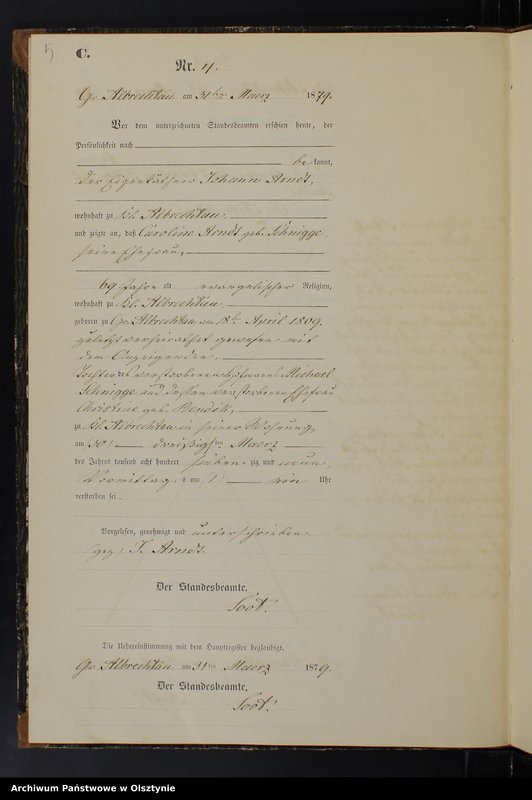 5
C.
Nr. 4.
Gr. Albrechtau am 31ten Maerz 1879.
Vor dem unterzeichneten Standesbeamten erschien heute, der
Persönlichkeit nach
be kannt,
der Eigenkäthner Johann Arndt,
wohnhaft zu Kl. Albrechtau,
und zeigte an, daß Caroline Arndt geb. Schnigge,
seine Ehefrau,
69 Jahre alt evangelischer Religion,
wohnhaft zu Kl. Albrechtau
geboren zu Gr. Albrechtau am 18ten April 1809.
zuletzt verheirathet gewesen mit
dem Anzeigenden.
Tochter des verstorbenen Hofmanns Michael
Schnigge und dessen verstorbenen Ehefrau
Christine geb. Bendik,
zu Kl. Albrechtau in seiner Wohnung,
am (30) dreißigsten Maerz
des Jahres tausend acht hundert sieben zig und neun,
Vormittag s um 1 ein Uhr
verstorben sei.
Vorgelesen, genehmigt und unterschrieben.
(gez) J. Arndt.
Der Standesbeamte.
Die Uebereinstimmung mit dem Hauptregister beglaubigt.
Gr. Albrechtau am 31ten Maerz 1879.
Der Standesbeamte.
Archiwum Państwowe w Olsztynie